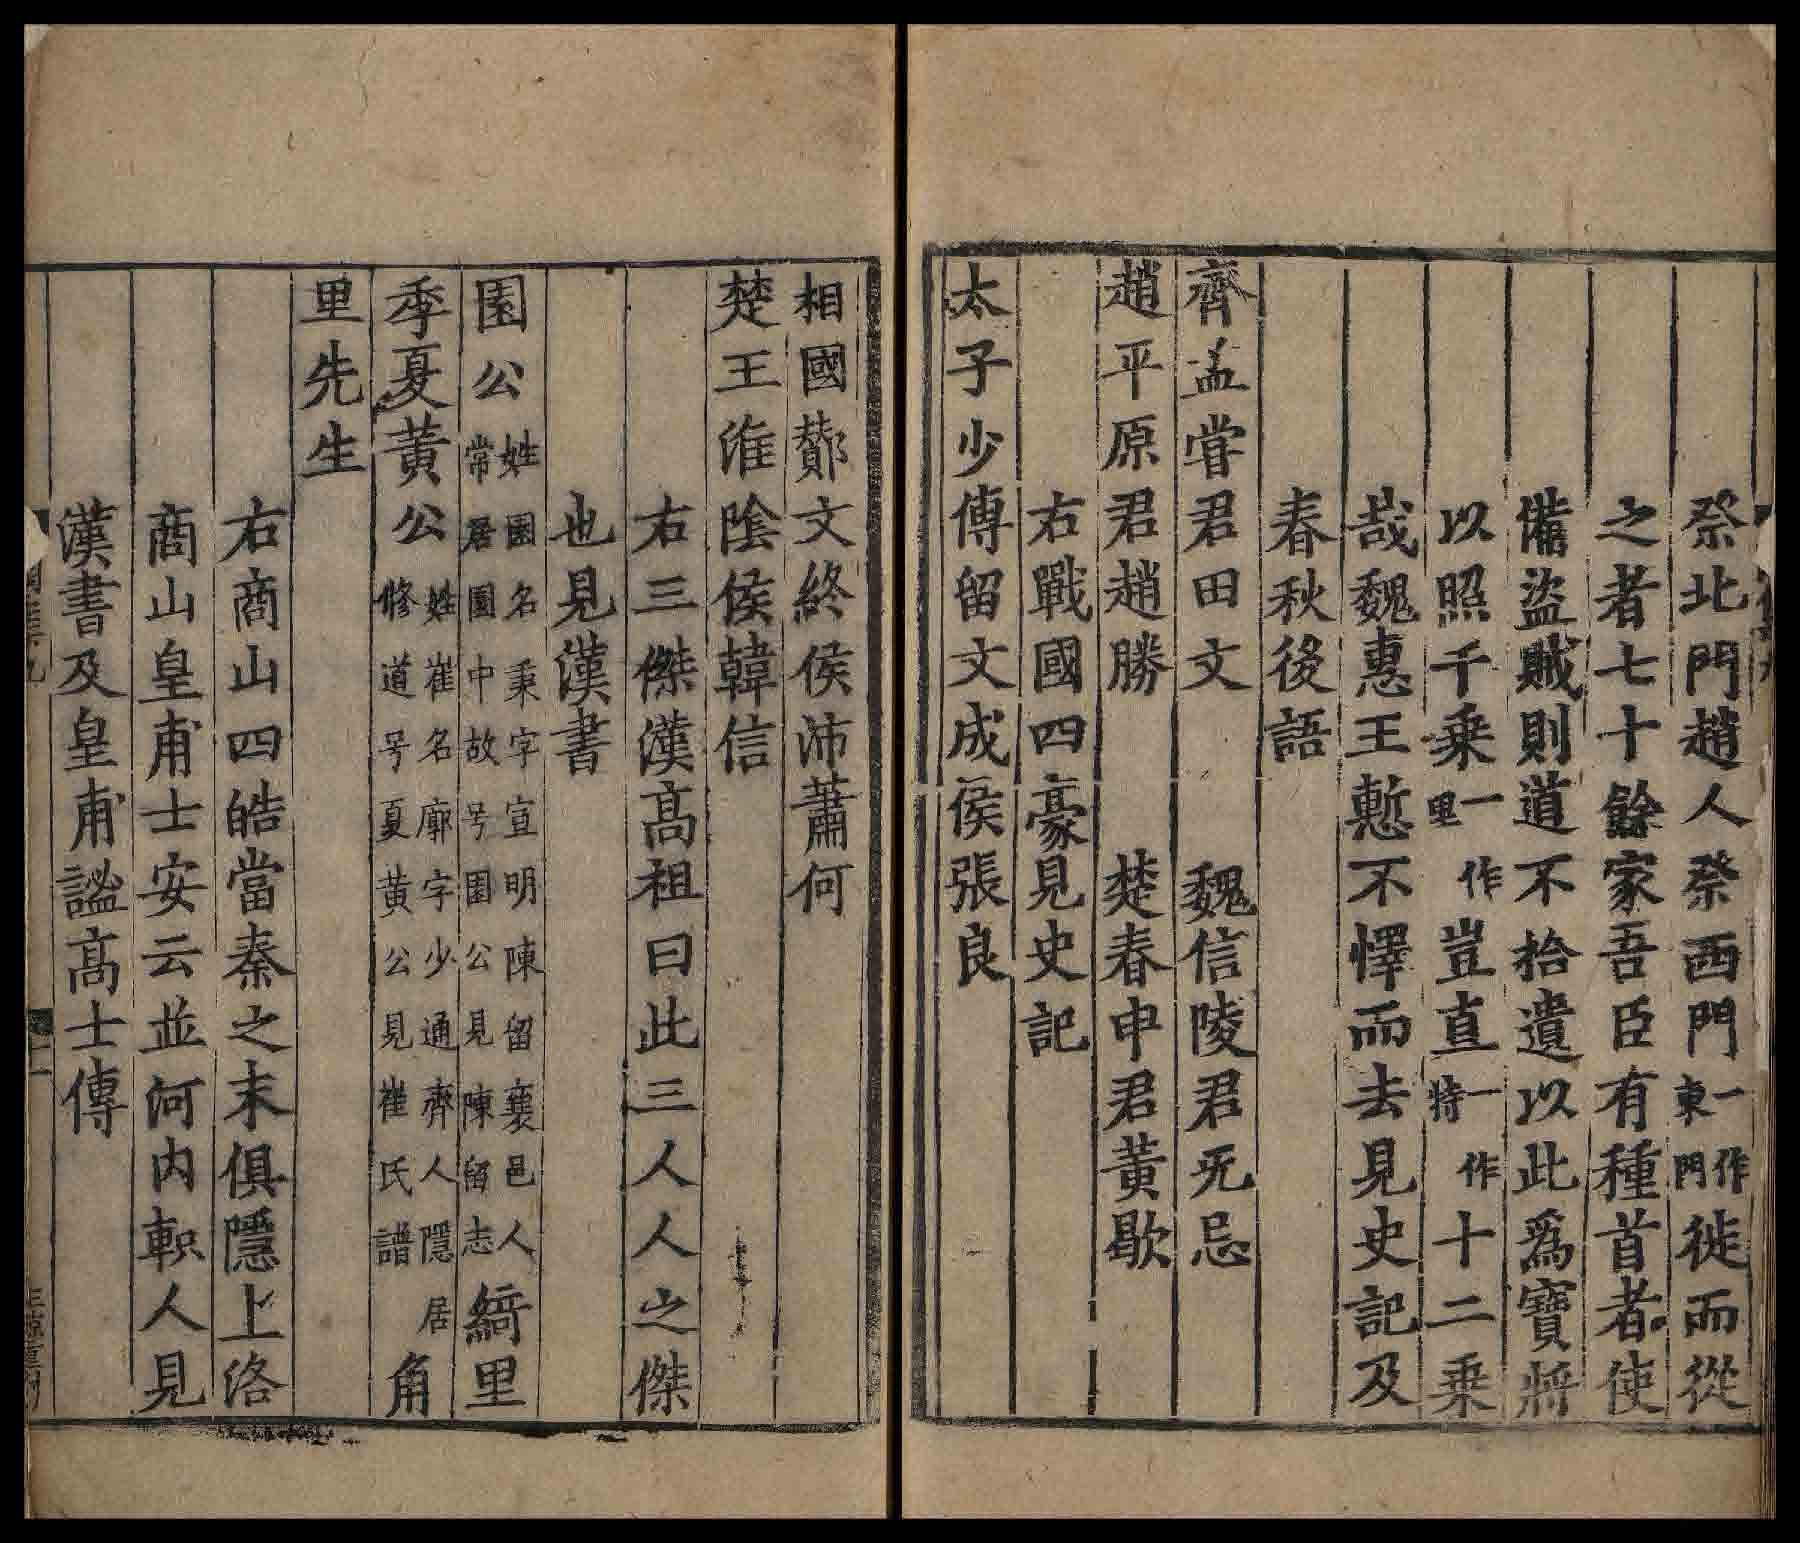 祭北門趙人祭西門一作東門徙而從
之者七十餘家吾臣有種首者使
備盜賊則道不拾遺以此爲寶將
以照千乗一作里豈直一作特十二乗
哉魏惠王慙不懌而去見史記及
春秋後語
齊孟甞君田文 魏信陵君无忌
趙平原君趙勝 楚春申君黃歇
右戰國四豪見史記
太子少傅留文成侯張良
相國酇文終侯沛蕭何
楚王淮陰侯韓信
右三傑漢高祖曰此三人人之傑
也見漢書
園公姓園名秉字宣明陳留襄邑人常居園中故号園公見陳留志綺里
季夏黃公姓崔名廓字少通齊人隱居修道号夏黃公見崔氏譜角
里先生
右商山四皓當秦之末俱隱上洛
商山皇甫士安云並河内軹人見
漢書及皇甫謐高士傳